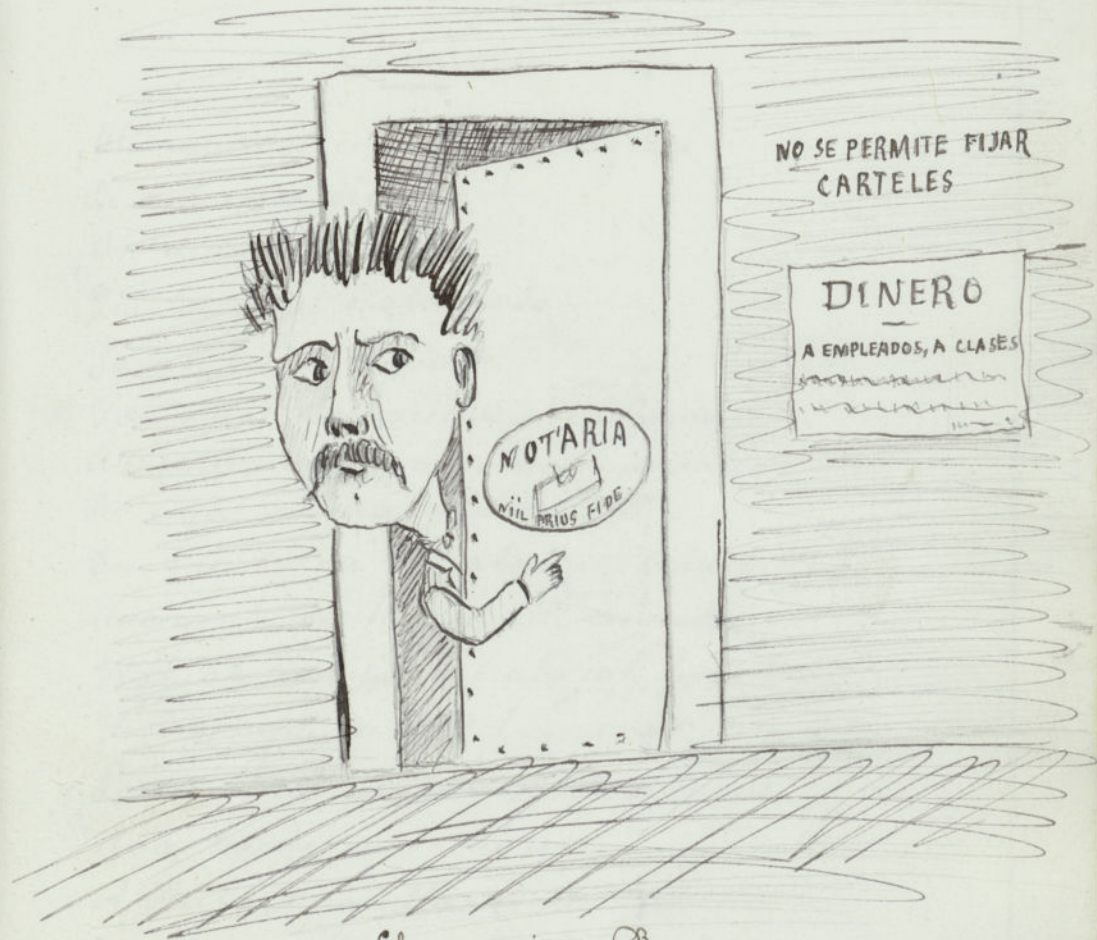 NO SE PERMITE FIJAR
CARTELES
DINERO
A EMPLEADOS, A CLASES
NOTARIA
NiiL PRIUS FIDE